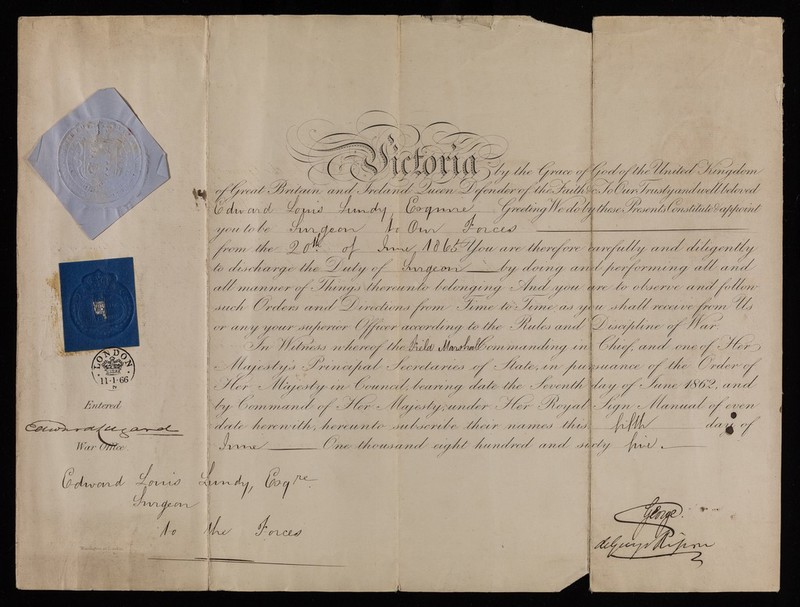 Victoria by the Grace of God of the United Kingdom
of Great Britain and Ireland Queen Defender of the Faith &c To Our Trusty and well beloved
Edward Louis Lundy, Esquire Greeting We do by these Presents Constitute & appoint
you to be Surgeon to Our Forces
from the 20th of June, 1865 You are therefore carefully and diligently
to discharge the Duty of Surgeon by doing and performing all and
all manner of Things thereunto belonging And you are to observe and follow
such Orders and Directions from Time to Time as you shall receive from Us
or any your superior Officer according to the Rules and Discipline of War
In Witness whereof the Field Marshal Commanding in Chief, and one of Her
Majesty's Principal Secretaries of State, in pursuance of the Order of
Her Majesty in Council, bearing date the Seventh day of June 1862, and
by Command of Her Majesty, under Her Royal Sign Manual of even
date herewith, hereunto subscribe their names this fifth day of
June One thousand eight hundred and sixty five.
LONDON
11·1·66
Entered
Edward Lugard
War Office.
Edward Louis Lundy, Esqre
Surgeon
to the Forces
George
de Grey & Ripon